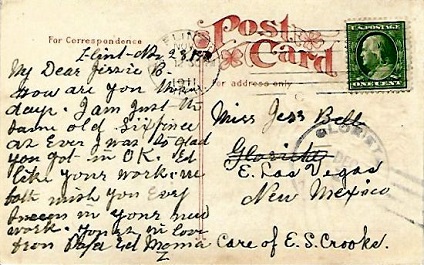 Post
Card
For Correspondence
For address only
FLINT
1911
U.S. POSTAGE
ONE CENT
Flint-Nov 28
My Dear Jessie B-
How are you these
days. I am just the
same old sixpince
as Ever I was so glad
you got in OK. Ed
like your work. we
both wish you Every
Success in your new
work. yours in love
from Papa Ed Moma
Miss Jess Bell
Glorieta
E. Las Vegas
New Mexico
Care of E.S. Crooke.
GLORIETA